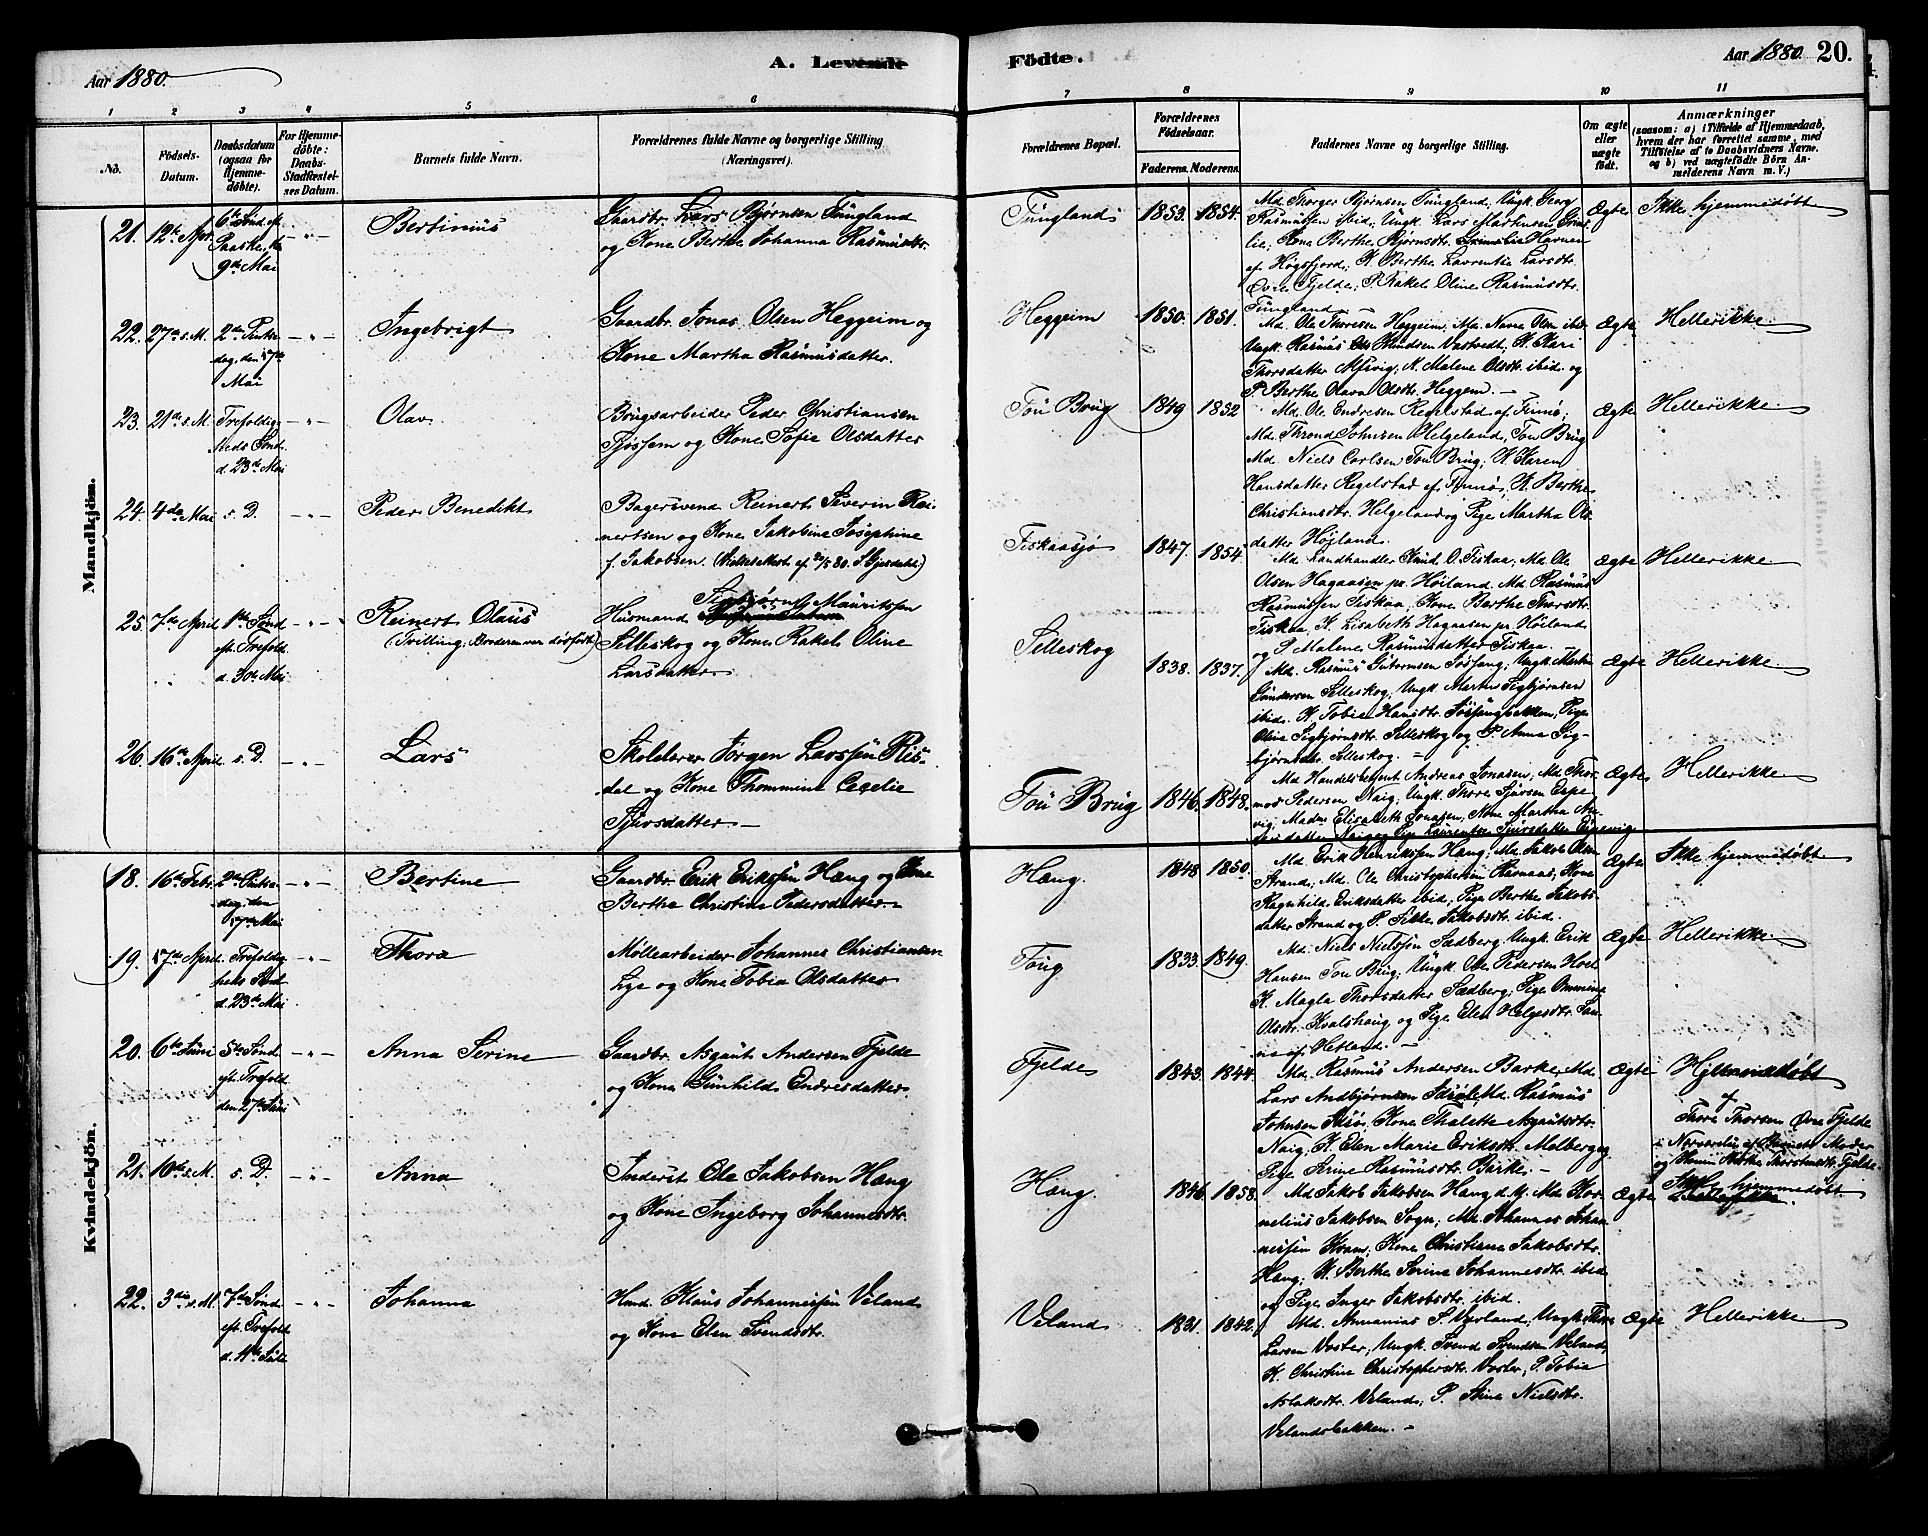 Aar 1880.
A. Levende
Födte.
Aar 1880.
20.
1 2 3 4 5 6
7 8 9 10 11
No.
Födsels-
Datum.
Daabsdatum
(ogsaa for
Hjemme-
döbte).
For Hjemme-
döbte:
Daabs-
Stadfæstel-
ses Datum.
Barnets fulde Navn.
Forældrenes fulde Navne og borgerlige Stilling
(Næringsvei).
Forældrenes Bopæl.
Forældrenes
Födselsaar.
Faderens. Moderens.
Faddernes Navne og borgerlige Stilling.
Om ægte
eller
uægte
födt.
Anmærkninger
(saasom: a) i Tilfælde af Hjemmedaab,
hvem der har forrettet samme, med
Tilföielse af to Daabsvidners Navne,
og b) ved uægtefödte Börn An-
melderens Navn m. V.)
Mandkjön.
21. 12te Apr.
6te Sönd. ef.
Paaske, den
9de Mai
Bertinius
Gaardbr. Lars Bjørnsen Tungland
og Kone Berthe Johanna Rasmusdtr.
Tungland
1853. 1854.
Md. Thorger Bjørnsen Tungland, Ungk. Georg
Rasmussen ibid, Ungk. Lars Martinsen
lie; Kone Berthe Bjørnsdtr.
af Høgsfjord; K. Berthe Laurentse Larsdtr.
Øvre Fjelde; P. Rakel Oline Rasmusdtr.
Tungland
Ægte
Ikke hjemmedøbt
22. 27de s. M.
2den Pintse-
dag, den 17de
Mai
Ingebrigt
Gaardbr. Jonas Olsen Heggeim og
Kone Martha Rasmusdatter.
Heggeim
1850. 1851.
Md. Ole Thoresen Heggeim, Md. Olsen ibid
Ungk. Rasmus Knudsen Vastvedt, K. Kari
Thorsdatter K. Malene Olsdtr. ibid. og
P. Berthe Olava Olsdtr. Heggem.
Ægte
Hellerikke
23. 21de s. M.
Trefoldig-
heds Sönd.
d. 23de Mai
Olav
Brugsarbeider Peder Christiansen
Tjøssem og Kone Sofie Olsdatter
Tou Brug
1849 1852
Md. Ole Endresen Regelstad af Finnø;
Md. Thrond Johnsen Helgeland, Tou Brug
Md. Niels Carlsen Tou Brug; K. Karen
Hansdatter Regelstad af Finnø, K. Berthe
Christiansdtr. Helgeland og Pige Martha Ols-
datter Højland.
Ægte
Hellerikke
24. 4de Mai
s. D.
Peder Benedikt
Bagersvend Reinert Severin Rei-
nertsen og Kone Jakobine Josephine
f. Jakobsen.
Fiskaasjø
1847. 1854
Md. Landhandler Knud O. Fiskaa, Md. Ole
Olsen Hagaasen pr. Höiland. Md. Rasmus
Rasmussen Fiskaa, Kone Berthe Thorsdtr.
Fiskaa, K. Lisabeth Hagaasen pr. Höiland
og P. Malene Rasmusdatter Fiskaa.
Ægte
Hellerikke
25. 7de April
1ste Sönd.
eft. Trefold.
d. 30te Mai
Reinert Olaus
(Tvilling; Broderen var dödfödt)
Husmand Sigbjørn Mauritssen
Selleskog og Kone Rakel Oline
Larsdatter
Selleskog
1838. 1837.
Md. Rasmus Guttormsen Ungk. Martin
Gundersen Selleskog, Ungk. Martin Sigbjørnsen
ibid. K. Tobia Hansdtr. Pige
Oline Sigbjørnsdtr. Selleskog og P. Anna Sig-
bjørnsdtr. Selleskog.
Ægte
Hellerikke
26. 16de April.
s. D.
Lars
Skolelærer Jørgen Larssen Ris-
dal og Kone Thommine Cecelie
Sjursdatter
Tou Brug
1846. 1848.
Md. Handelsbetjent Andreas Jonassen, Md. Thor-
mod Pedersen Naig; Ungk. Thore Sjursen Espe-
vig, Madm. Elisabeth Jonassen, Kone Martha
Naig og Pige Laurentse Sjursdatter Espevig.
Ægte
Hellerikke
Kvindekjön.
18. 16de Febr.
2den Pintse-
dag, den
17de Mai
Bertine
Gaardbr. Erik Erikssen Haug og Kone
Berthe Christine Pedersdatter.
Haug.
1848 1850.
Md. Erik Henrikssen Haug; Md. Jakob Olsen
Strand; Md. Ole Christophersen Kone
Ragnhild Eriksdatter ibid; Pige Berthe Jakobs-
datter Strand og P. Jakobsdtr. ibid.
Ægte
Ikke hjemmedøbt
19. 17de April
Trefoldig-
heds Sönd.
d. 23de Mai
Thora
Møllearbeider Johannes Christiansen
Lye og Kone Tobia Olsdatter
Toug
1833. 1849.
Md. Niels Nielssen Sædberg, Ungk. Erik
Hansen Tou Brug; Ungk. Ole Pedersen
K. Magla Thorsdatter Sædberg; Pige Ommine
Olsdtr. Kvalshaug og Pige Elen Helgesdtr.
af Hetland.
Ægte
Hellerikke
20. 6te Juni
5te Sönd.
eft. Trefold.
den 27de Juni
Anna Serine
Gaardbr. Asgaut Andersen Fjelde
og Kone Gunhild Endresdatter.
Fjelde
1843. 1844.
Md. Rasmus Andersen Barke, Md.
Lars Andbjørnsen Idsøe, Md. Rasmus
Johnsen Idsø, Kone Thalette Asgautsdtr.
Naig, K. Elen Marie Eriksdtr. Molberg og
Pige Serine Rasmusdtr. Barke.
Ægte
Hjemmedøbt
Thore Thorsen Øvre Fjelde
i Nærværelse af Barnets Moder
og Berthe Thorstensdtr. Fjelde.
21. 10de s. M.
s. D.
Anna
Inderst Ole Jakobsen Haug
og Kone Ingeborg Johannesdtr.
Haug.
1846. 1858.
Md. Jakob Jakobsen Haug d. y. Md. Kor-
nelius Jakobsen Sogn; Md. Johannes Johan-
nessen Kvam; Kone Christiana Jakobsdtr.
Haug; K. Berthe Serine Johannesdtr. ibid
og Pige Inger Jakobsdtr. ibid.
Ægte
Ikke hjemmedøbt
22. 3die s. M.
7de Sönd.
eft. Trefold
d. 11te Juli
Johanna
Hmd. Klaus Johannessen Veland
og Kone Elen Svendsdtr.
Veland
1831. 1842.
Md. Annanias S. Ungk. Thore
Larsen Voster, Ungk. Svend Svendsen Veland,
K. Christine Christophersdtr. Voster, P. Tobia
Aslaksdtr. Veland; P. Stine Nielsdtr.
Velandsbakken.
Ægte
Hellerikke